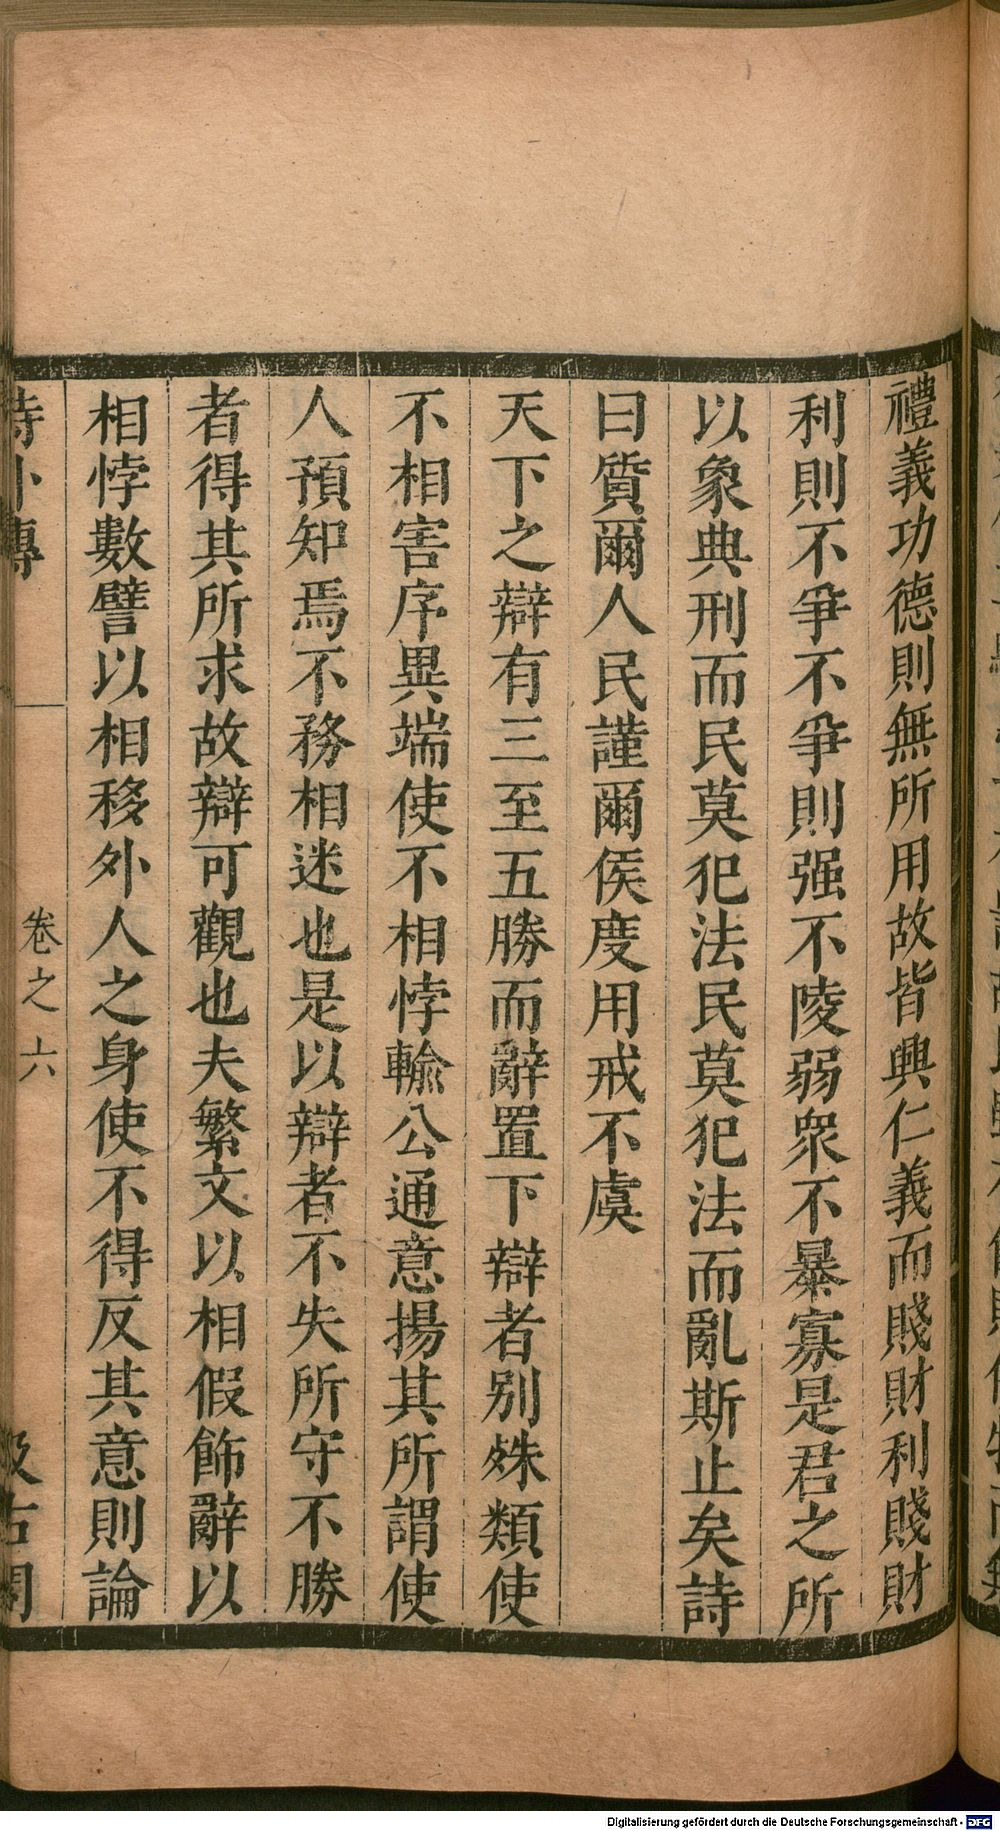 禮義功德則無所用故皆興仁義而賤財利賤財
利則不爭不爭則强不陵弱衆不暴寡是君之所
以象典刑而民莫犯法民莫犯法而亂斯止矣詩
曰質爾人民謹爾侯度用戒不虞
天下之辯有三至五勝而辭置下辯者别殊類使
不相害序異端使不相悖輸公通意揚其所謂使
人預知焉不務相迷也是以辯者不失所守不勝
者得其所求故辯可觀也夫繁文以相假飾辭以
相悖數譬以相移外人之身使不得反其意則論
詩外傳
卷之六
汲古閣
Digitalisierung gefördert durch die Deutsche Forschungsgemeinschaft - DFG